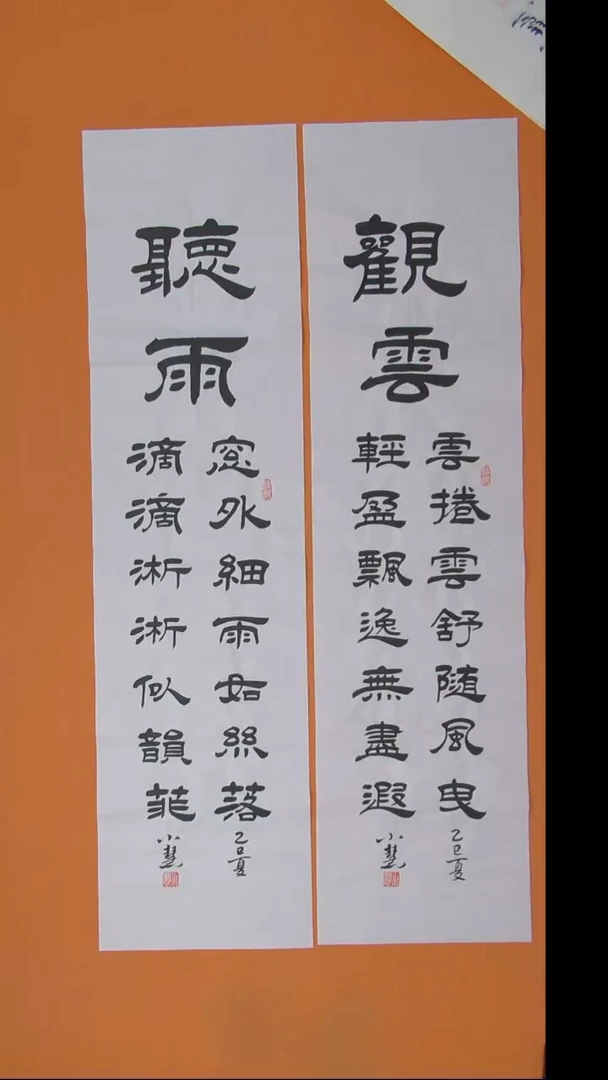 觀雲
雲捲雲舒隨風曳
輕盈飄逸無盡遐
乙巳夏
小慧
聽雨
窓外細雨如絲落
滴滴淅淅似韻菲
乙巳夏
小慧